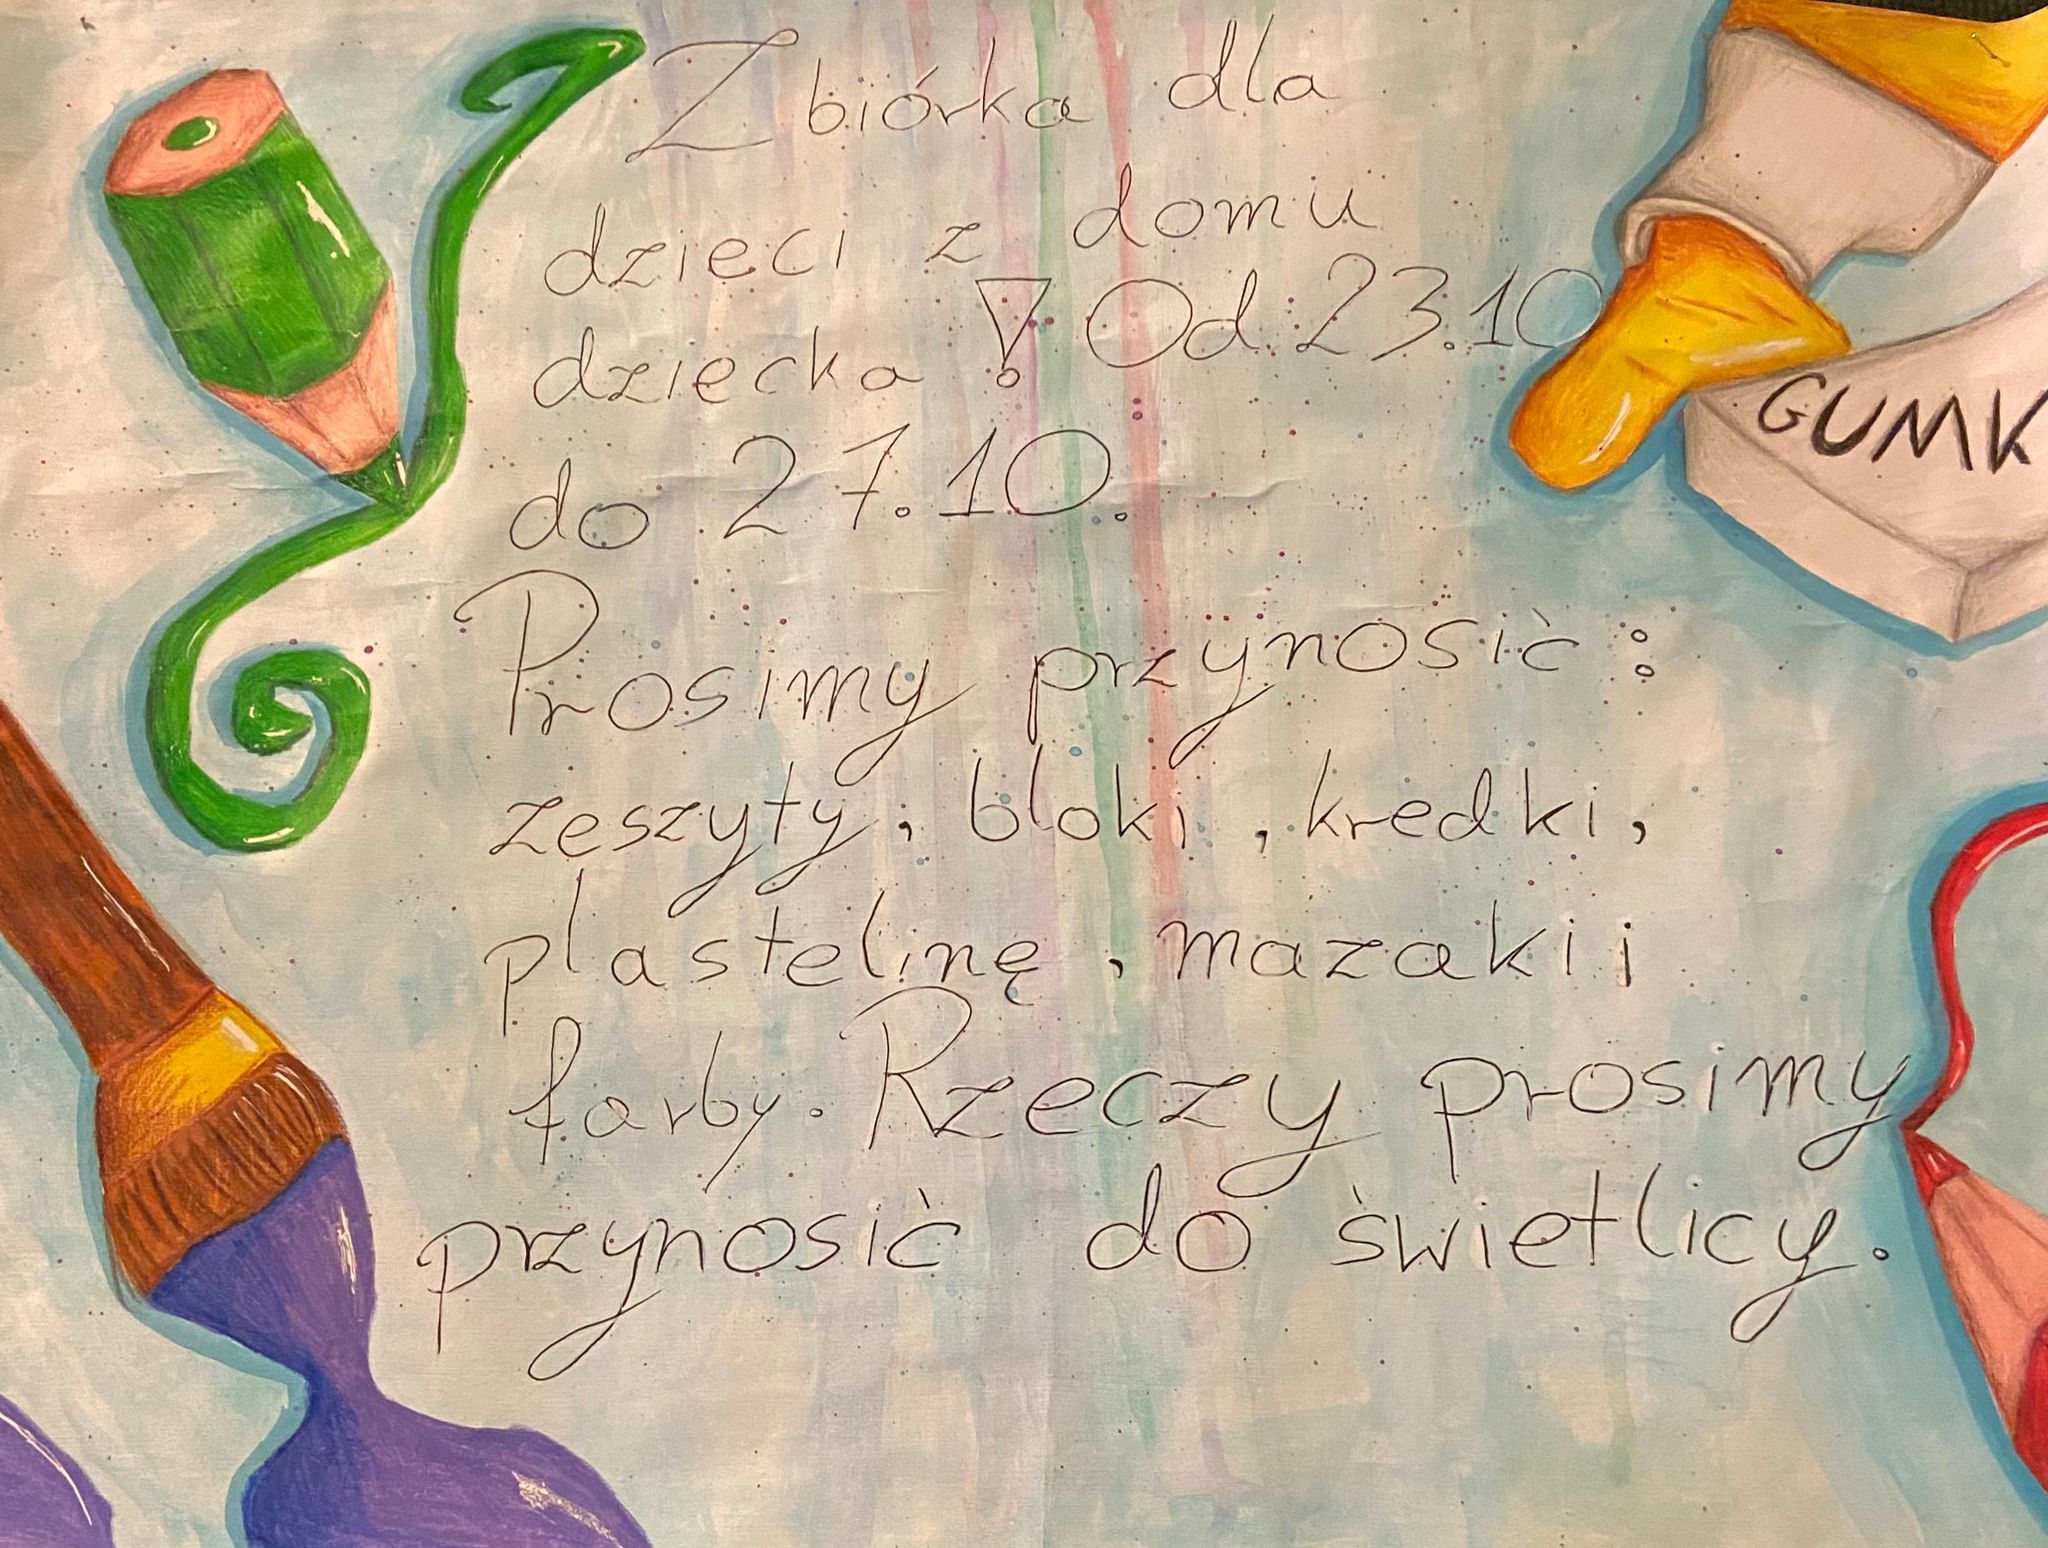 Zbiórka dla
dzieci z domu
dziecka ! Od 23.10
do 27.10.
Prosimy przynosić:
zeszyty, bloki, kredki,
plastelinę, mazaki i
farby. Rzeczy prosimy
przynosić do świetlicy.
GUMK